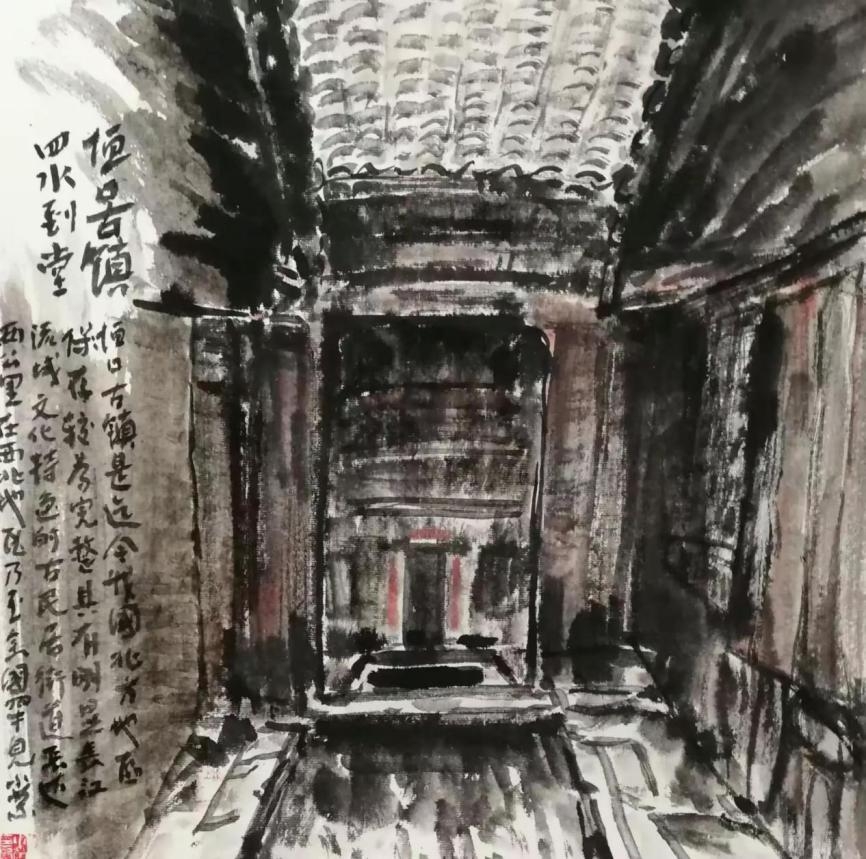 恒口镇
四水到堂
恒口古镇是迄今我国北方地区
保存较为完整具有明显长江
流域文化特色的古民居街道长达
两公里在西北地区乃至全国罕见